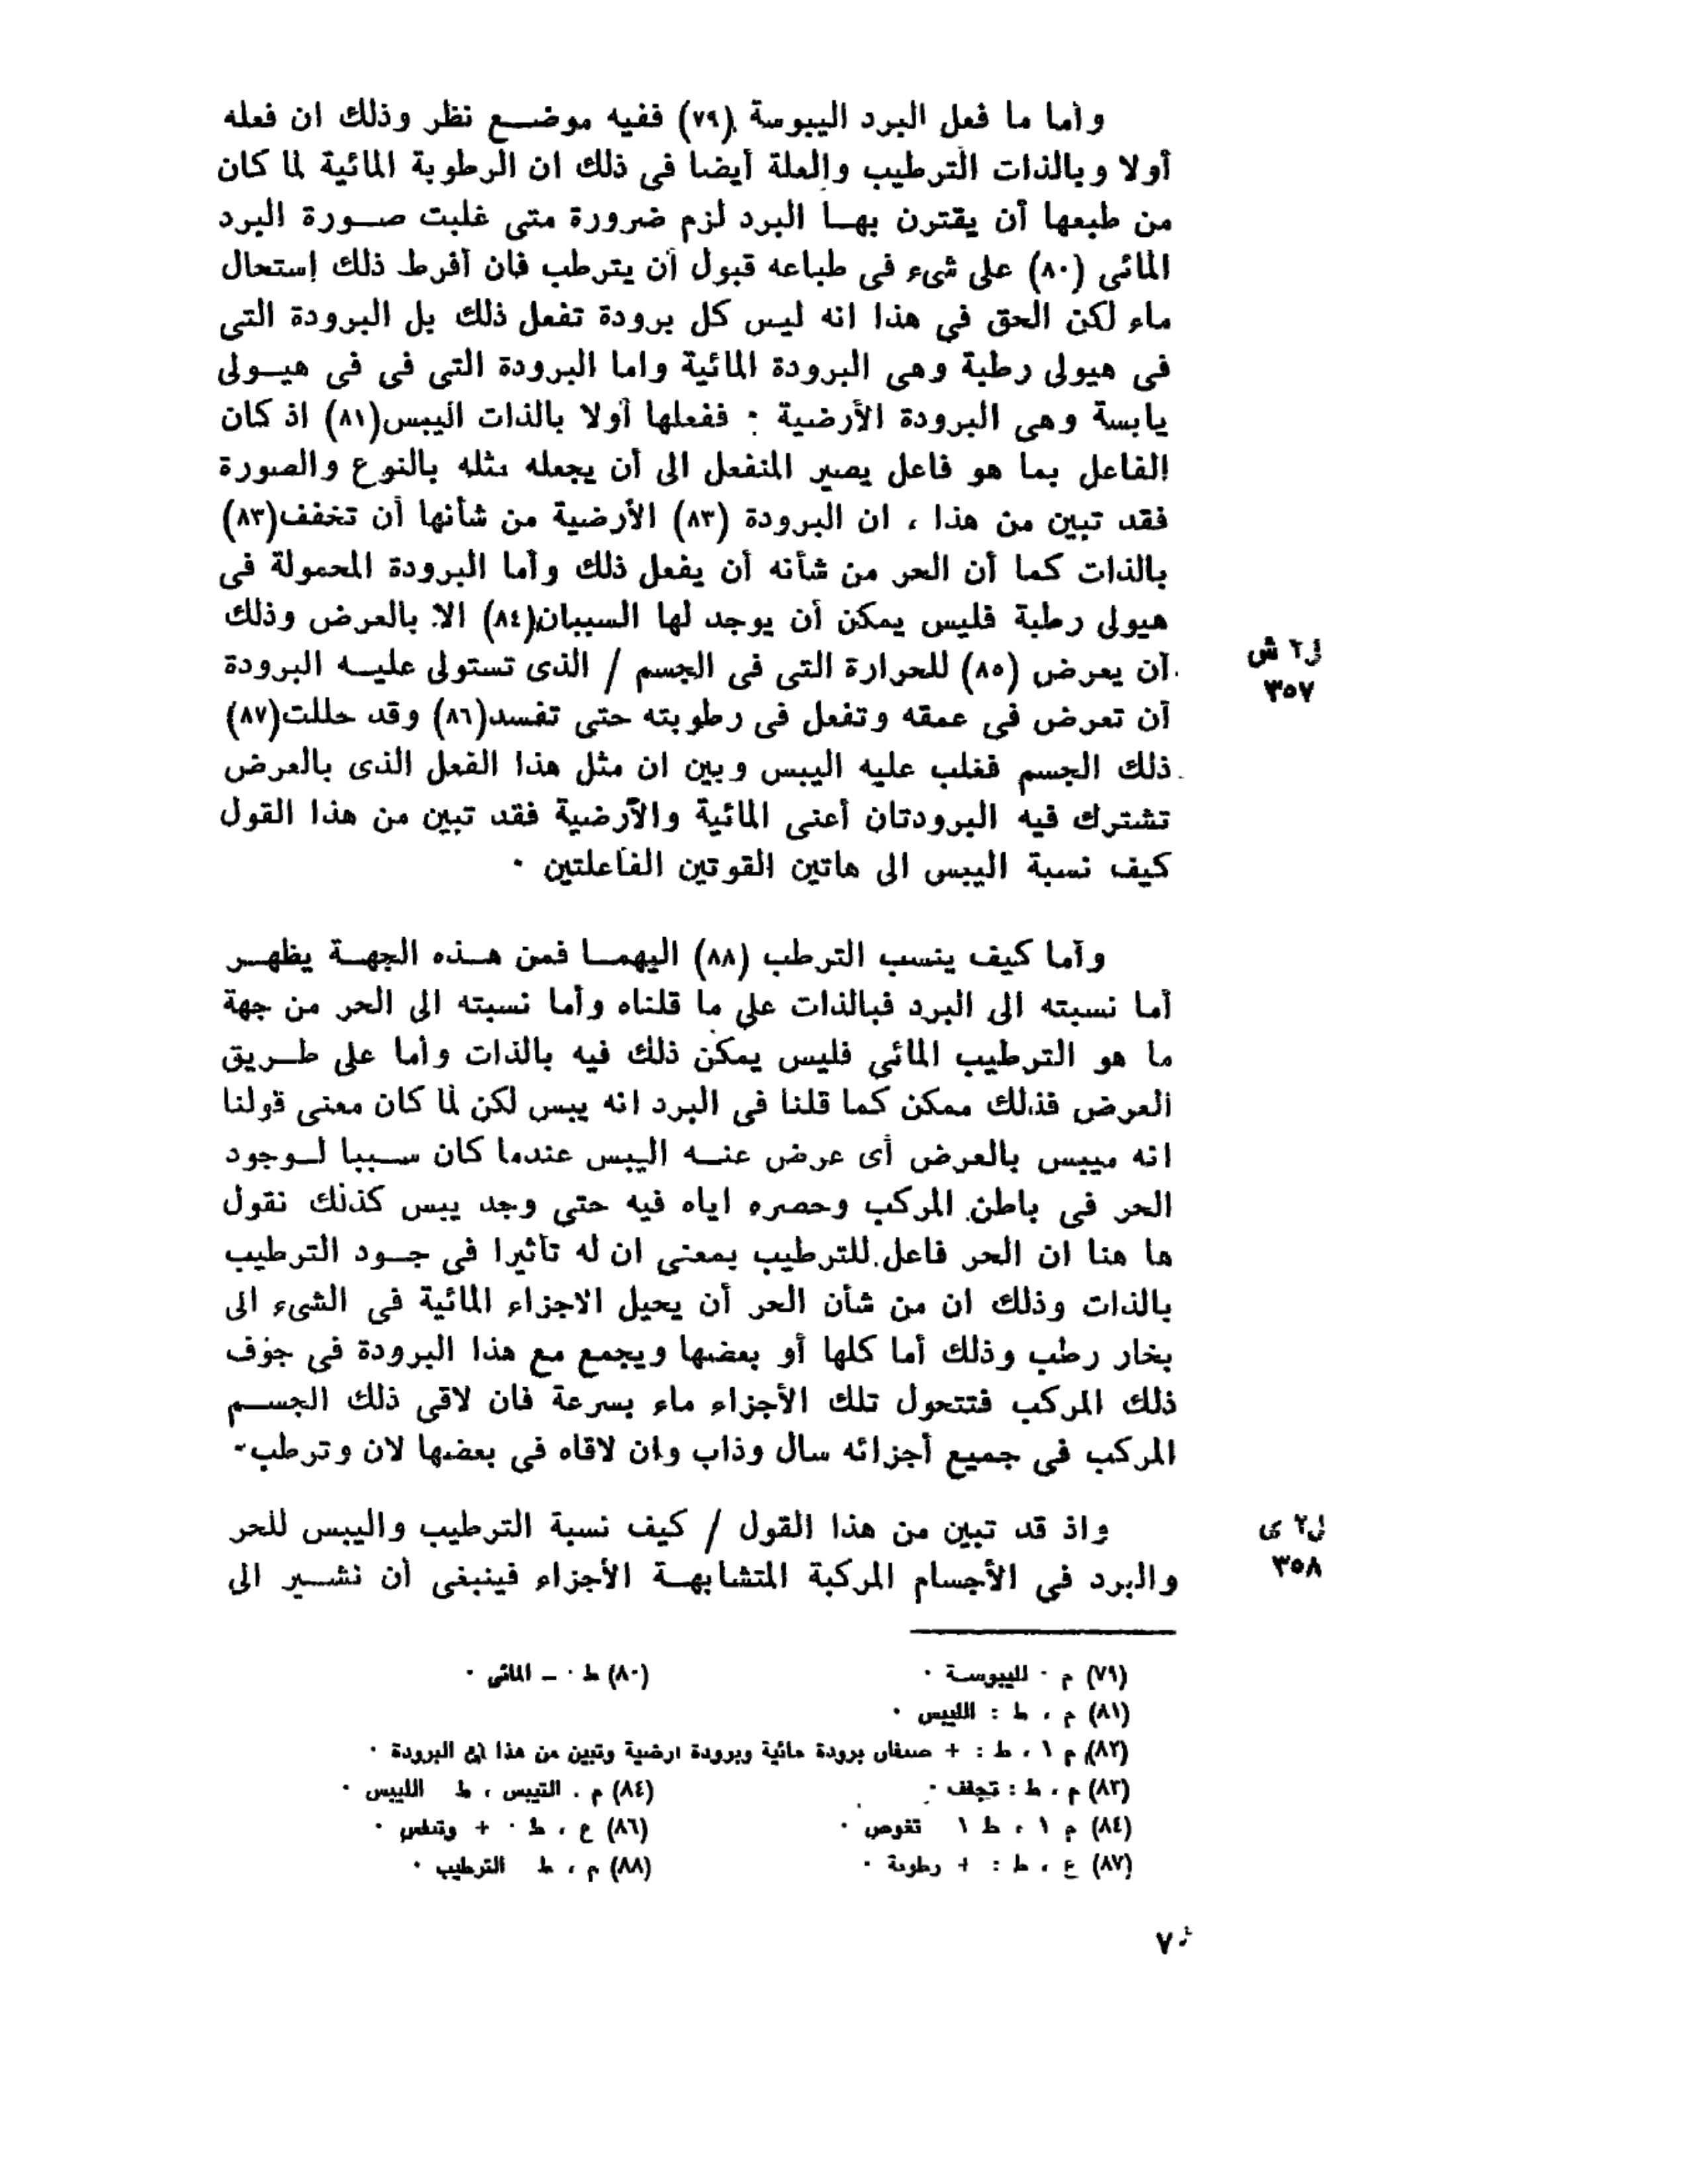 وأما ما فعل البرد اليبوسة (٧٩) ففيه موضع نظر وذلك ان فعله
أولا وبالذات الترطيب والعلة أيضا فى ذلك ان الرطوبة المائية لما كان
من طبعها أن يقترن بها البرد لزم ضرورة متى غلبت صورة البرد
المائى (٨٠) على شىء فى طباعه قبول أن يترطب فان أفرط ذلك إستحال
ماء لكن الحق فى هذا انه ليس كل برودة تفعل ذلك بل البرودة التى
فى هيولى رطبة وهى البرودة المائية واما البرودة التى فى فى هيولى
يابسة وهى البرودة الأرضية : ففعلها أولا بالذات اليبس(٨١) اذ كان
الفاعل بما هو فاعل يصير المنفعل الى أن يجعله مثله بالنوع والصورة
فقد تبين من هذا ، ان البرودة (٨٣) الأرضية من شأنها أن تخفف(٨٣)
بالذات كما أن الحر من شأنه أن يفعل ذلك وأما البرودة المحمولة فى
هيولى رطبة فليس يمكن أن يوجد لها السببان(٨٤) الا بالعرض وذلك
أن يعرض (٨٥) للحرارة التى فى الجسم / الذى تستولى عليه البرودة
ل٢ ش
٣٥٧
أن تعرض فى عمقه وتفعل فى رطوبته حتى تفسد(٨٦) وقد حللت(٨٧)
ذلك الجسم فغلب عليه اليبس وبين ان مثل هذا الفعل الذى بالعرض
تشترك فيه البرودتان أعنى المائية والأرضية فقد تبين من هذا القول
كيف نسبة اليبس الى هاتين القوتين الفاعلتين ٠
وأما كيف ينسب الترطب (٨٨) اليهما فمن هذه الجهة يظهر
أما نسبته الى البرد فبالذات على ما قلناه وأما نسبته الى الحر من جهة
ما هو الترطيب المائى فليس يمكن ذلك فيه بالذات وأما على طريق
العرض فذلك ممكن كما قلنا فى البرد انه يبس لكن لما كان معنى قولنا
انه مييبس بالعرض أى عرض عنه اليبس عندما كان سببا لوجود
الحر فى باطن المركب وحصره اياه فيه حتى وجد يبس كذلك نقول
ها هنا ان الحر فاعل للترطيب بمعنى ان له تأثيرا فى جود الترطيب
بالذات وذلك ان من شأن الحر أن يحيل الاجزاء المائية فى الشىء الى
بخار رطب وذلك أما كلها أو بعضها ويجمع مع هذا البرودة فى جوف
ذلك المركب فتتحول تلك الأجزاء ماء بسرعة فان لاقى ذلك الجسم
المركب فى جميع أجزائه سال وذاب وان لاقاه فى بعضها لان وترطب٠
واذ قد تبين من هذا القول / كيف نسبة الترطيب واليبس للحر
ل٢ ى
٣٥٨
والبرد فى الأجسام المركبة المتشابهة الأجزاء فينبغى أن نشير الى
(٧٩) م ٠ لليبوسة ٠
(٨٠) ط ٠ ــ المائى ٠
(٨١) م ، ط : الليبس ٠
(٨٢) م ١ ، ط : + صنفان برودة مائية وبرودة ارضية وتبين من هذا ان البرودة ٠
(٨٣) م ، ط : تجفف ٠
(٨٤) م . التيبس ، ط الليبس ٠
(٨٤) م ١ ، ط ١ تغوص ٠
(٨٦) ع ، ط ٠ + وتنفس ٠
(٨٧) ع ، ط : + رطوبة ٠
(٨٨) م ، ط الترطيب ٠
٧٠